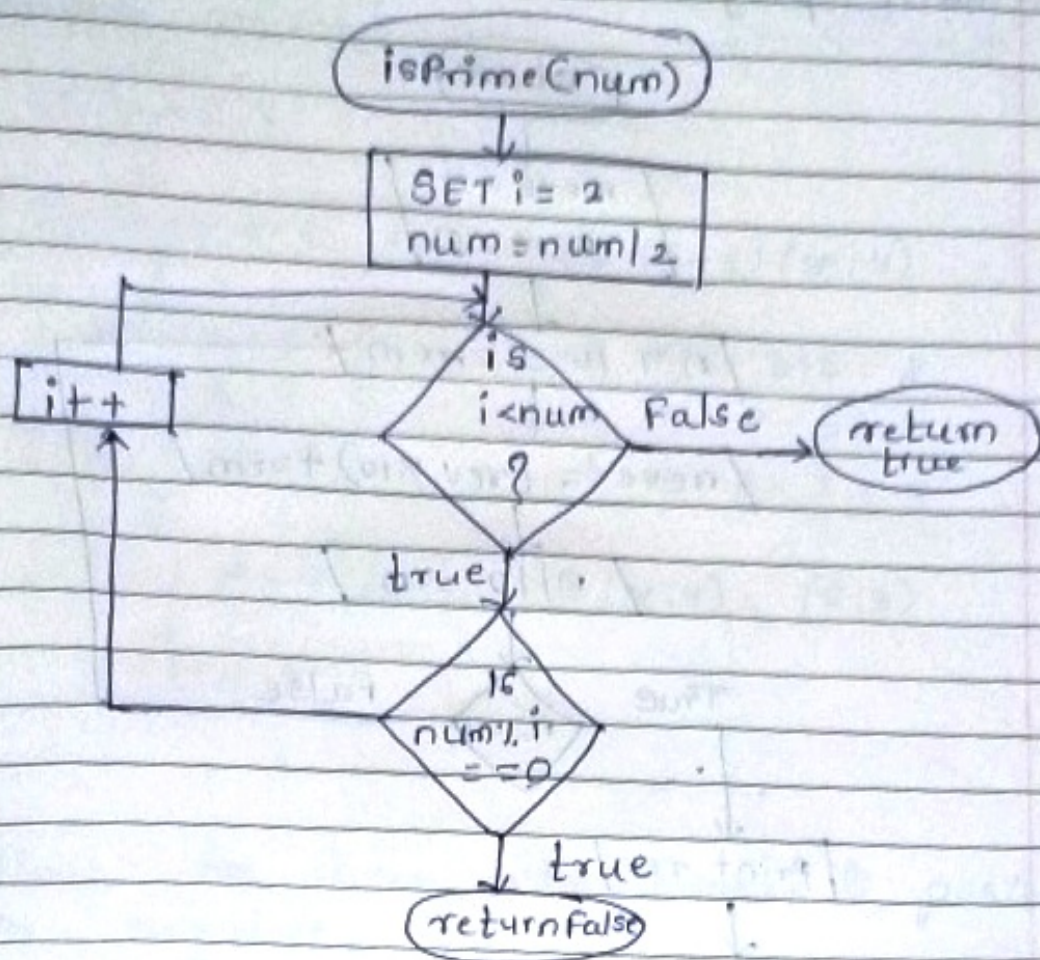 isPrime(num)
SET i = 2
num = num/2
i++
is
i<num
?
False
return
true
true
is
num%i
==0
true
return False